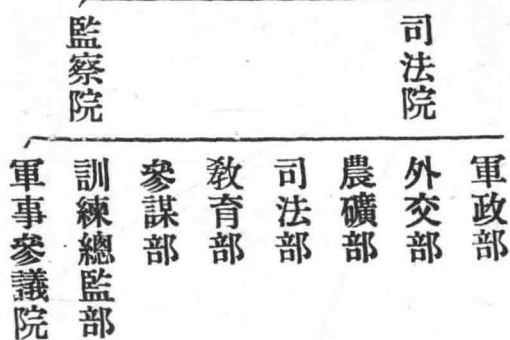 司法院
監察院
軍政部
外交部
農礦部
司法部
教育部
參謀部
訓練總監部
軍事參議院